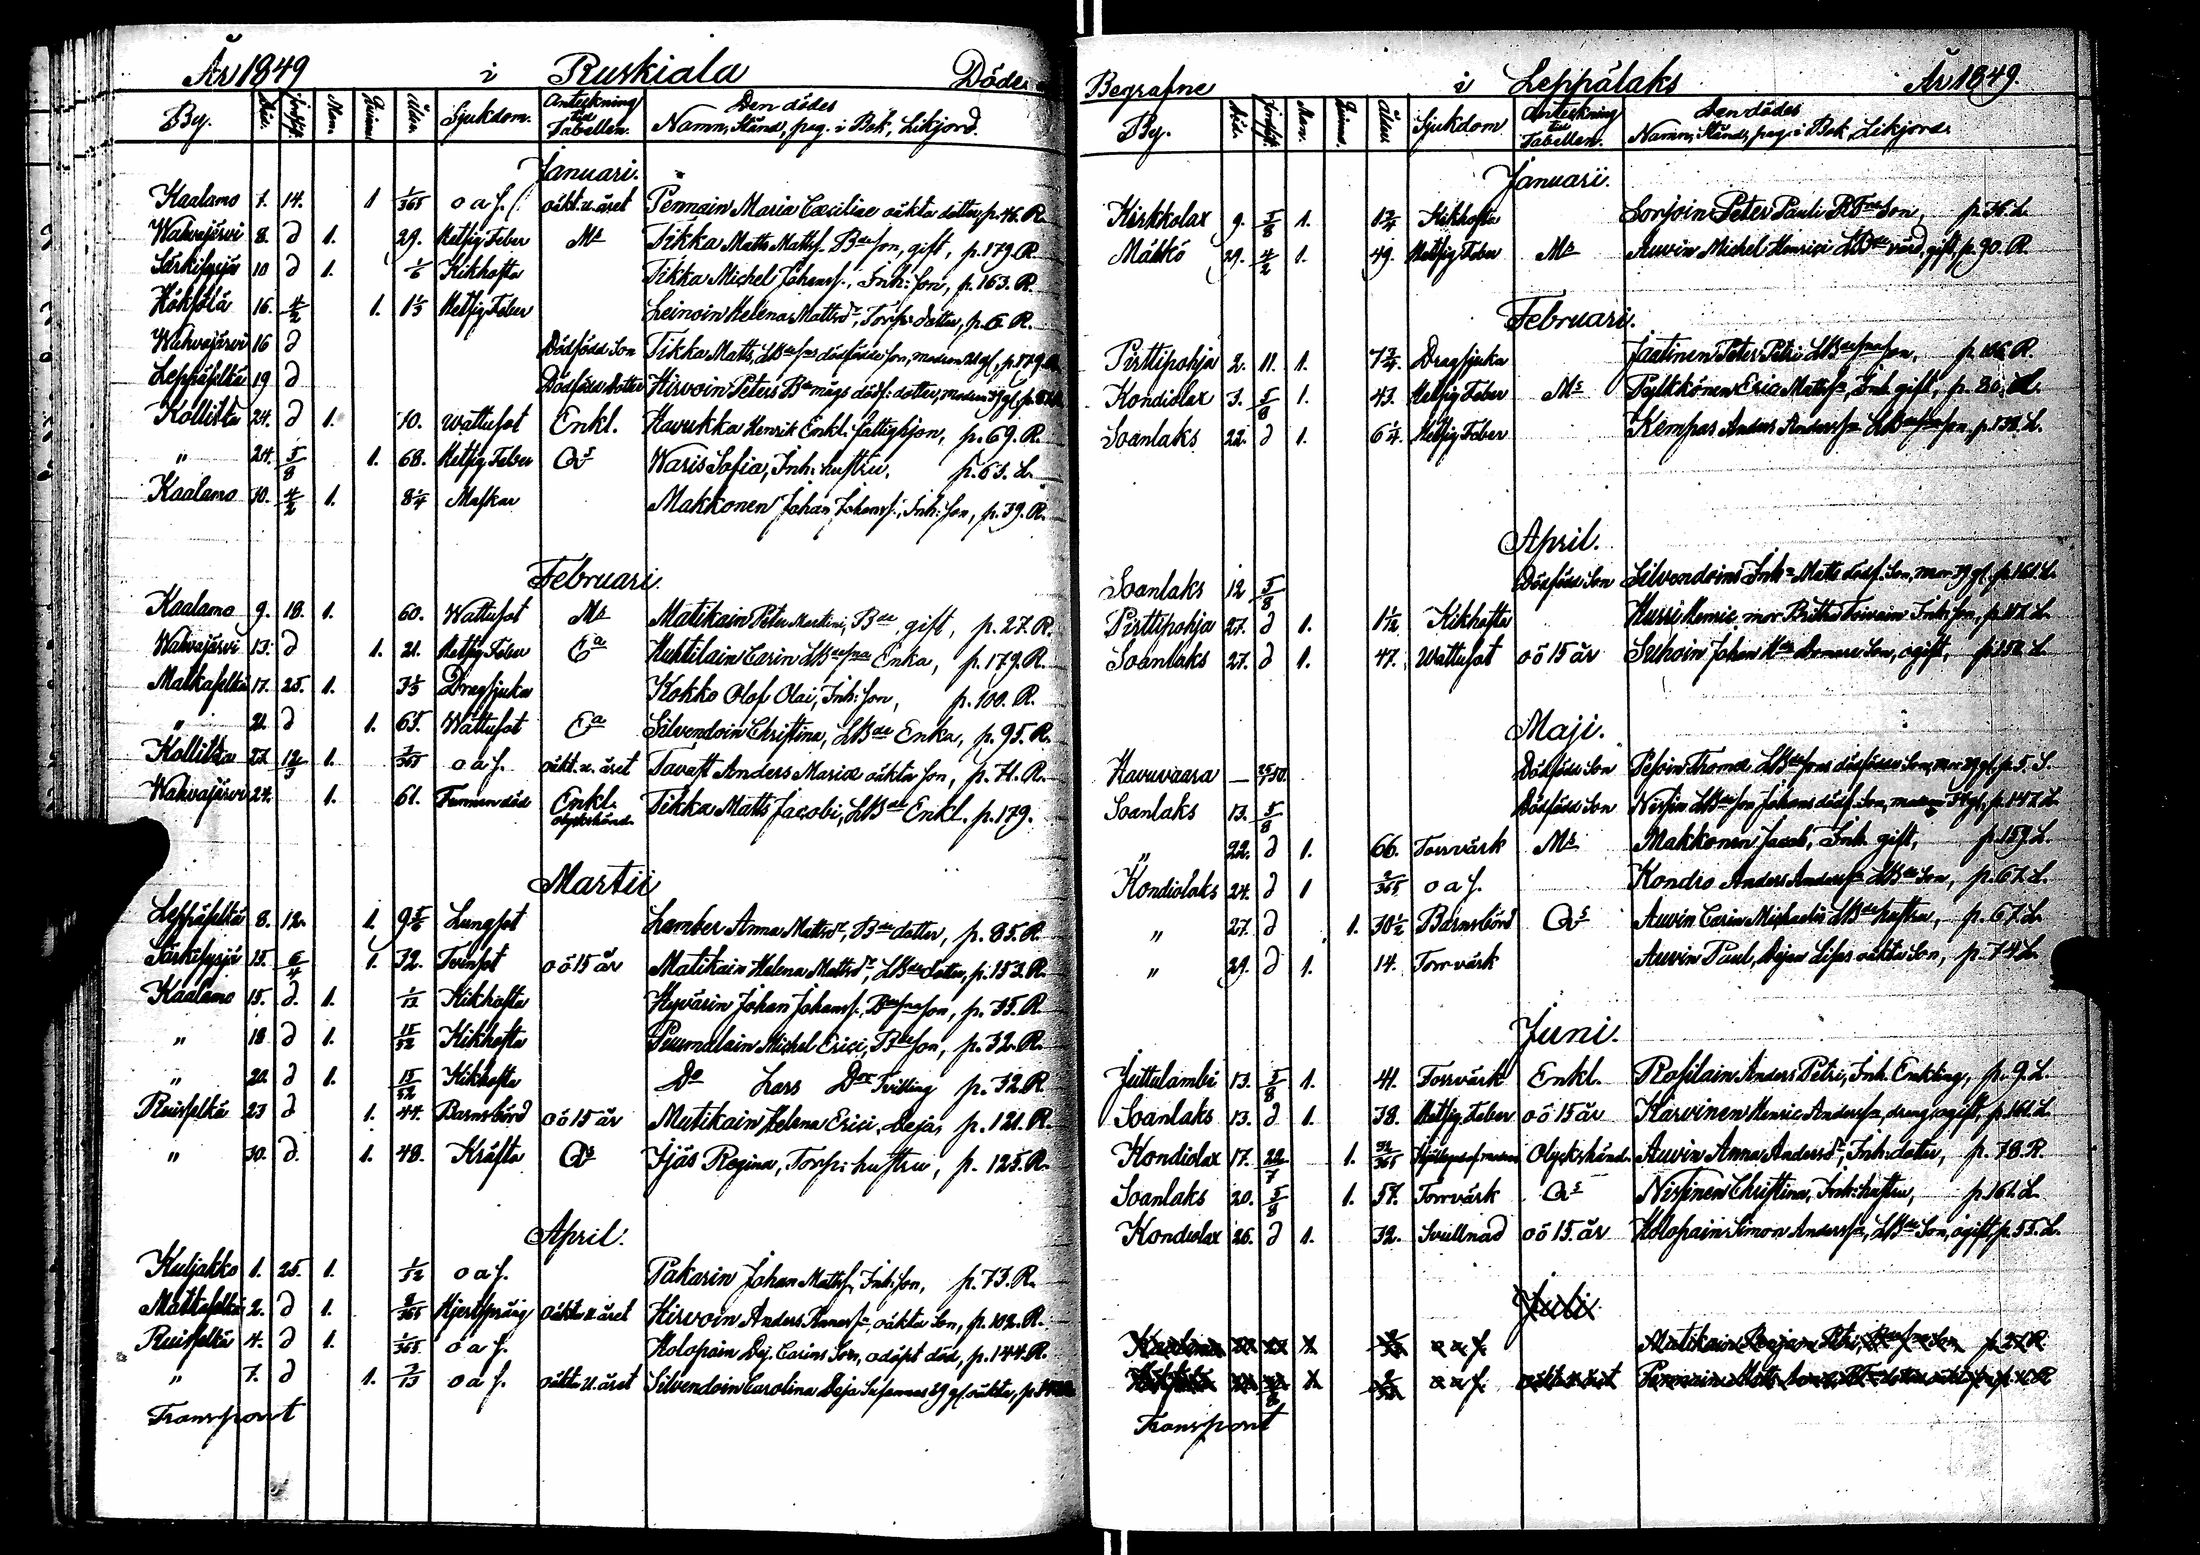 År 1849 i Ruskiala Döde
By. Död. Jordf. Man. Qvinna. Ålder Sjukdom. Anteckning till Tabellen. Den dödes Namn, Stånd, pag. i Bok, Likjord.
Januari.
Kaalamo 1. 14. 1 1/365 o a s. oäkt. u. året Pennain Maria Cæciliæ oäkta dotter, p. 46. R.
Wahvajärvi 8. d 1. 29. Hetsig Feber Ms Tikka Matts Mattss. Bde son, gift, p. 179. R.
Särkisyrjä 10 d 1. 1/6 Kikhosta Tikka Michel Johanss. Inh: son, p. 163. R.
16. 4/2 1. 1 1/3 Hetsig Feber Leinoin Helena Mattsdr, Torp: dotter, p. 6. R.
Wahvajärvi 16 d Dödfödd Son Tikka Matts, LBde sons dödfödde son, modren 21 gl, p. 179
Leppäselkä 19 d Dödfödd Dotter Hirvoin Peters Bde mågs dödf: dotter, modren 39 gl. p.
Kollitsa 24. d 1. 10. Wattusot Enkl. Havukka Henrik Enkl. fattighjon, p. 69. R.
" 24. 5/8 1. 68. Hetsig Feber Qs Waris Sofia, Inh: hustru, p. 63. L.
Kaalamo 10. 4/2 1. 8 1/4 Maskar Makkonen Johan Johanss., Inh: son, p. 39. R.
Februari.
Kaalamo 9. 18. 1. 60. Wattusot Ms Matikain Peter Martini, Bde, gift, p. 27. R.
Wahvajärvi 13. d 1. 21. Hetsig Feber Ea Huhtilain Carin LBdesons Enka, p. 179. R.
Matkaselkä 17. 25. 1. 3 1/3 Dragsjuka Kokko Olof Olai, Inh: son, p. 100. R.
" 21. d 1. 65. Wattusot Ea Silvendoin Christina, LBde Enka, p. 95. R.
Kollitsa 27. 12/3 1. 7/365 o a s. oäkt. u. året Tavast Anders Mariæ oäkta son, p. 71. R.
Wahvajärvi 24. 1. 61. Funnen död Enkl. olyckshänd. Tikka Matts Jacobi, LBde Enkl. p. 179.
Martii
Leppäselkä 8. 12. 1. 9 5/6 Lungsot Lember Anna Mattsdr, Bde dotter, p. 85. R.
Särkisyrjä 15. 6/4 1. 32. Tvinsot o ö 15 år Matikain Helena Mattsdr, LBde dotter, p. 153. R.
Kaalamo 15. d. 1. 1/13 Kikhosta Hyvärin Johan Johanss., Bdesons son, p. 35. R.
" 18 d 1. 15/52 Kikhosta Puumalain Michel Erici, Bde son, p. 32. R.
" 20. d 1. 15/52 Kikhosta Do Lars Dos Tvilling p. 32. R.
Ruisselkä 23 d 1. 44. Barnsbörd o ö 15 år Matikain Helena Erici, Deja, p. 121. R.
" 30. d. 1. 48. Kräfta Qs Ijäs Regina, Torp: hustru, p. 125. R.
April.
Kuljakko 1. 25. 1. 1/52 o a s. Pakarin Johan Mattss, Inh: son, p. 73. R.
Matkaselkä 2. d 1. 8/365 Hjertsprång oäkta u. året Hirvoin Anders oäkta Son, p. 102. R.
Ruisselkä 4. d 1. 1/365 o a s. Holopain Dej. Carins Son, odöpt död, p. 144. R.
" 7. d 1. 2/13 o a s. oäkta u. året Silvendoin Carolina Deja Susannas 29 gl. oäkta, p.
Transport
Begrafne i Leppälaks År 1849.
By. Död. Jordf. Man. Qvinna. Ålder Sjukdom Anteckning till Tabellen. Den dödes Namn, Stånd, pag. i Bok Likjord.
Januarii.
Kirkkolax 9. 5/8 1. 1 3/4 Kikhosta Sorsoin Peter Pauli Son, p. 36. L.
Mätkö 29. 4/2 1. 49. Hetsig Feber Ms Auvin Michel Henrici LBde värd, gift, p. 90. R.
Februari.
Pirttipohja 2. 11. 1. 7 3/4 Dragsjuka Jaatinen Peter Petri LBdesons son, p. 106. R.
Kondiolax 3. 5/8 1. 43. Hetsig Feber Ms Pylkkönen Eric Mattss. Inh. gift, p. 80. L.
Soanlaks 22. d 1. 6 1/4 Hetsig Feber Kempas Anders Anderss. LBdesons son, p. 138. L.
April.
Soanlaks 12 5/8 Dödfödd Son Silvendoins Inhs Matts dödf. Son, mor 39 gl. p. 161. L.
Pirttipohja 27. d 1. 1 1/12 Kikhosta Hurri Henric, mor Britha Toivain Inh: son, p. 117. L.
Soanlaks 27. d 1. 47. Wattusot o ö 15 år Suhoin Johan Son, ogift, p. 152. L.
Maji.
Havuvaara — 25/1850. Dödfödd Son Pesoin Thomæ LBde sons dödfödde Son, mor 29 gl. p. 5. L.
Soanlaks 13. 5/8 Dödfödd Son Nissin LBde son Johans dödf. Son, modren 34 gl., p. 147. L.
" 22. d 1. 66. Torrvärk Ms Makkonen Jacob, Inh. gift, p. 159. L.
Kondiolaks 24. d 1 2/365 o a s. Kondio Anders Anderss. LBde Son, p. 67. L.
" 27. d 1. 30 1/2 Barnsbörd Qs Auvin Carin Michaelis LBde hustru, p. 67. L.
" 29. d 1. 14. Torrvärk Auvin Paul, Dejan Lisas oäkta Son, p. 74 L.
Juni.
Juttulambi 13. 5/8 1. 41. Torrvärk Enkl. Rosilain Anders Petri, Inh. Enkling, p. 9. L.
Soanlaks 13. d 1. 38. Hetsig Feber o ö 15 år Karvinen Henric Anderss., dreng, ogift, p. 161. L.
Kondiolax 17. 22/7 1. 31/365 Olyckshänd. Auvin Anna Andersdr, Inh: dotter, p. 78. R.
Soanlaks 20. 5/8 1. 57. Torrvärk Qs Nissinen Christina, Inh: hustru, p. 161. L.
Kondiolax 26. d 1. 32. Svullnad o ö 15. år Holopain Simon Anderss., LBde Son, ogift, p. 55. L.
Juli
o a s. Matikain Benjam Petri, p. 27. R.
o a s. oäkta u. året Pennain
Transport